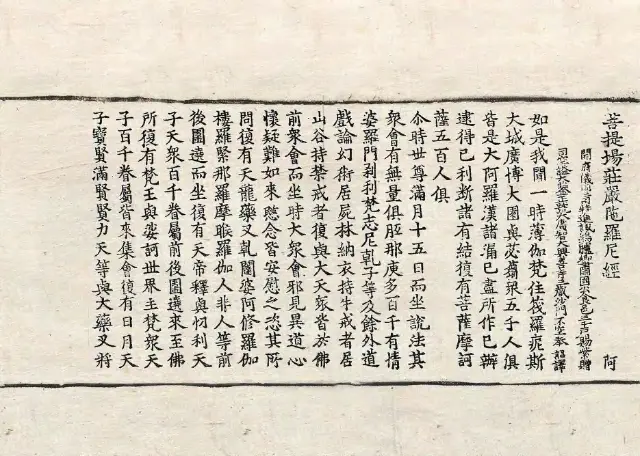 菩提場莊嚴陀羅尼經 阿
開府儀同三司特進試鴻臚卿肅國公食邑三千戶賜紫贈
司空謚大鑒正号大廣智大興善寺三藏沙門不空奉 詔譯
如是我聞一時薄伽梵住筏羅痆斯
大城廣博大園與苾芻眾五千人俱
皆是大阿羅漢諸漏已盡所作已辦
逮得己利斷諸有結復有菩薩摩訶
薩五百人俱
尒時世尊滿月十五日而坐說法其
眾會有無量俱胝那庾多百千有情
婆羅門剎利梵志尼乹子等及餘外道
戲論幻術居屍林納衣持牛戒者居
山谷持禁戒者復與大天眾皆於佛
前眾會而坐時大眾會邪見異道心
懷疑難如來愍念皆安慰之恣其所
問復有天龍藥叉乹闥婆阿修羅伽
樓羅緊那羅摩睺羅伽人非人等前
後圍遶而坐復有天帝釋與忉利天
子天眾百千眷屬前後圍遶來至佛
所復有梵王與娑訶世界主梵眾天
子百千眷屬皆來集會復有日月天
子寶賢滿賢賢力天等與大藥叉將